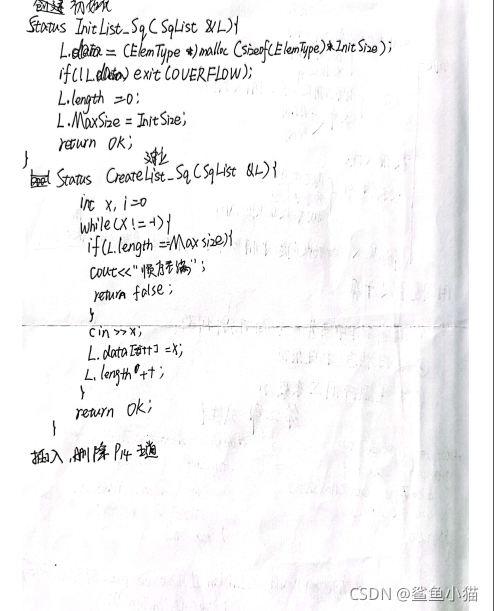 创建 初始化
Status InitList_Sq(SqList &L){
L.data = (ElemType *)malloc(sizeof(ElemType)*InitSize);
if(!L.data) exit(OVERFLOW);
L.length =0;
L.MaxSize = InitSize;
return OK;
}
Status CreateList_Sq(SqList &L){
int x, i=0
while(x!=-1){
if(L.length ==Maxsize){
cout<<"顺序表满";
return false;
}
cin>>x;
L.data[i++] =x;
L.length++;
}
return OK;
}
插入,删除 P14
CSDN @鲨鱼小猫